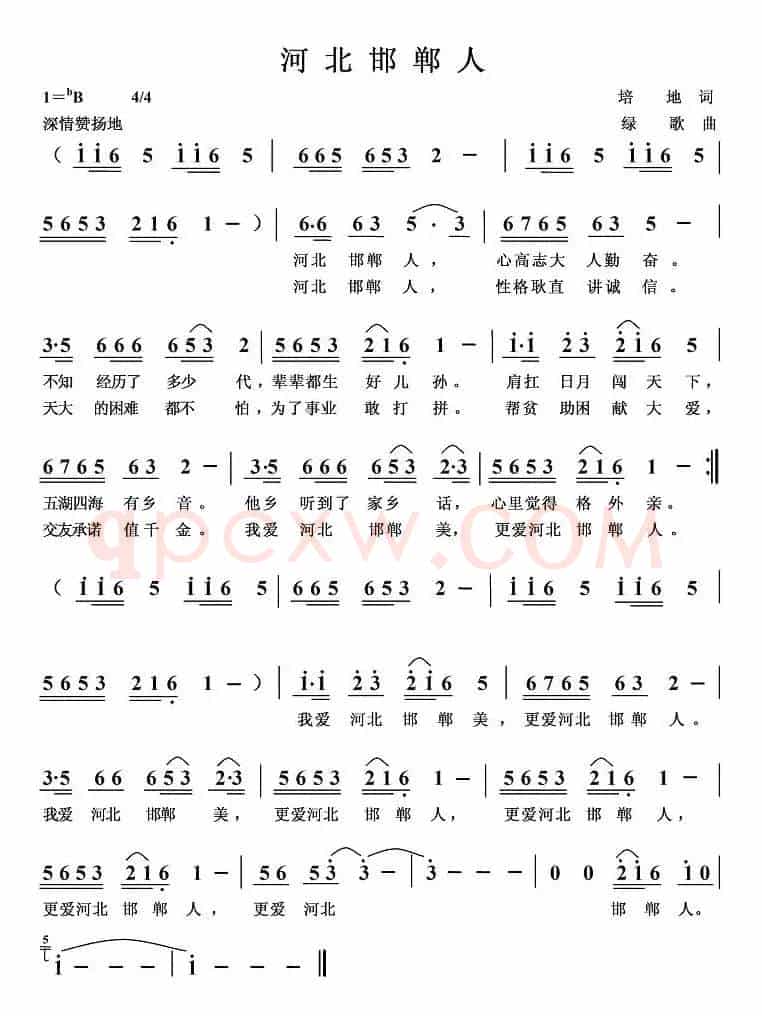 河北邯郸人
1=ᵇB 4/4 培 地 词
深情赞扬地 绿 歌 曲
( i̇ i̇ 6 5 i̇ i̇ 6 5 | 6 6 5 6 5 3 2 － | i̇ i̇ 6 5 i̇ i̇ 6 5 |
5 6 5 3 2 1 6̣ 1 － ) | 6·6 6 3 5 · 3 | 6 7 6 5 6 3 5 － |
河北 邯郸 人， 心高志大 人勤 奋。
河北 邯郸 人， 性格耿直 讲诚 信。
3·5 6 6 6 6 5 3 2 | 5 6 5 3 2 1 6̣ 1 － | i̇·i̇ 2̇ 3̇ 2̇ i̇ 6 5 |
不知 经历了 多少 代，辈辈都生 好儿 孙。 肩扛 日月 闯天 下，
天大 的困难 都不 怕，为了事业 敢打 拼。 帮贫 助困 献大 爱，
6 7 6 5 6 3 2 － | 3·5 6 6 6 6 5 3 2·3 | 5 6 5 3 2 1 6̣ 1 － :‖
五湖四海 有乡 音。 他乡 听到了 家乡 话，心里觉得 格外 亲。
交友承诺 值千 金。 我爱 河北 邯郸 美，更爱河北 邯郸 人。
qpcxw.COM
( i̇ i̇ 6 5 i̇ i̇ 6 5 | 6 6 5 6 5 3 2 － | i̇ i̇ 6 5 i̇ i̇ 6 5 |
5 6 5 3 2 1 6̣ 1 － ) | i̇·i̇ 2̇ 3̇ 2̇ i̇ 6 5 | 6 7 6 5 6 3 2 － |
我爱 河北 邯郸 美，更爱河北 邯郸 人。
3·5 6 6 6 5 3 2·3 | 5 6 5 3 2 1 6̣ 1 － | 5 6 5 3 2 1 6̣ 1 － |
我爱 河北 邯郸 美，更爱河北 邯郸 人， 更爱河北 邯郸 人，
5 6 5 3 2 1 6̣ 1 － | 5 6 5 3̇ 3̇ － | 3̇ － － － | 0 0 2̇ i̇ 6 i̇ 0 |
更爱河北 邯郸 人，更爱 河北 邯郸 人。
5 i̇ － － － | i̇ － － ‖